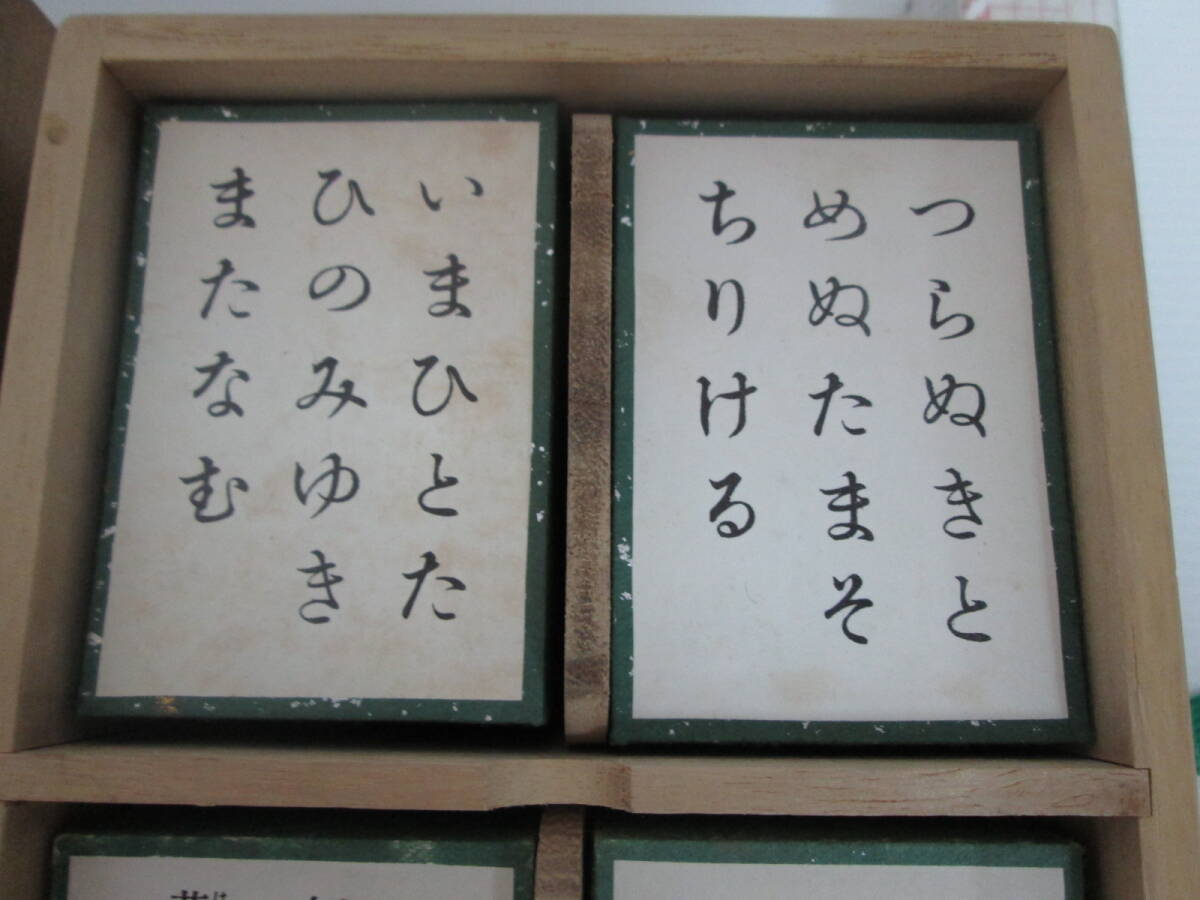 つらぬきと
めぬたまそ
ちりける
いまひとた
ひのみゆき
またなむ